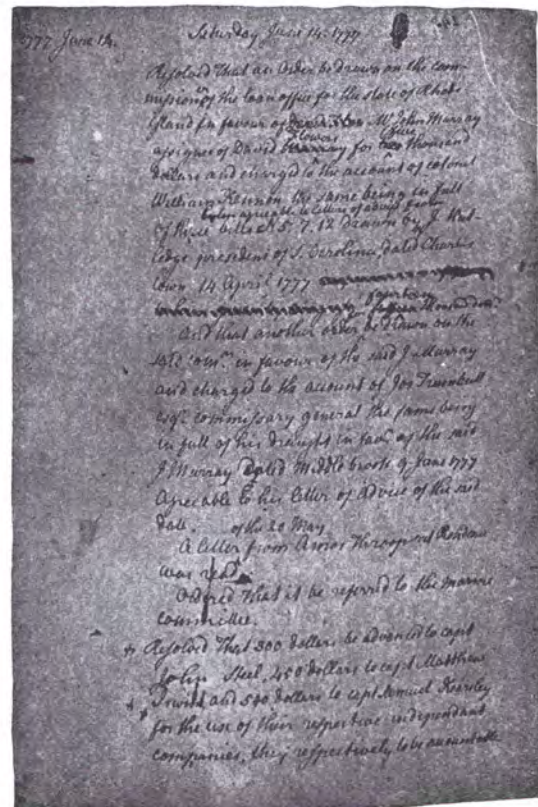 1777 June 14. Saturday June 14. 1777
Resolved That an Order be drawn on the com-
mission of the loan office for the state of Rhode
Island in favour of Mr John Murray
Flowers five
assignee of David for two thousand
dollars and charged to the account of colonel
William Kennon the same being in full
bills agreeable to letters of advice from
of three bills No 5. 7. 12 drawn by J. Rut-
ledge president of S. Carolina, dated Charles
town 14 April 1777
fourteen
thousand
And that another order be drawn on the
said comr. in favour of the said J. Murray
and charged to the account of Jos Trumbull
esqr. commissary general the same being
in full of his draught in favr. of the said
J Murray dated Middlebrook 9 June 1777
Agreeable to his letter of advice of the said
date. of the 20 May
A letter from Amos Throop
was read.
Ordered That it be referred to the marine
committee.
Resolved That 300 dollars be advanced to capt
John Steel, 450 dollars to capt Matthew
and 500 dollars to capt Samuel Kearsley
for the use of their respective independant
companies, they respectively to be accountable